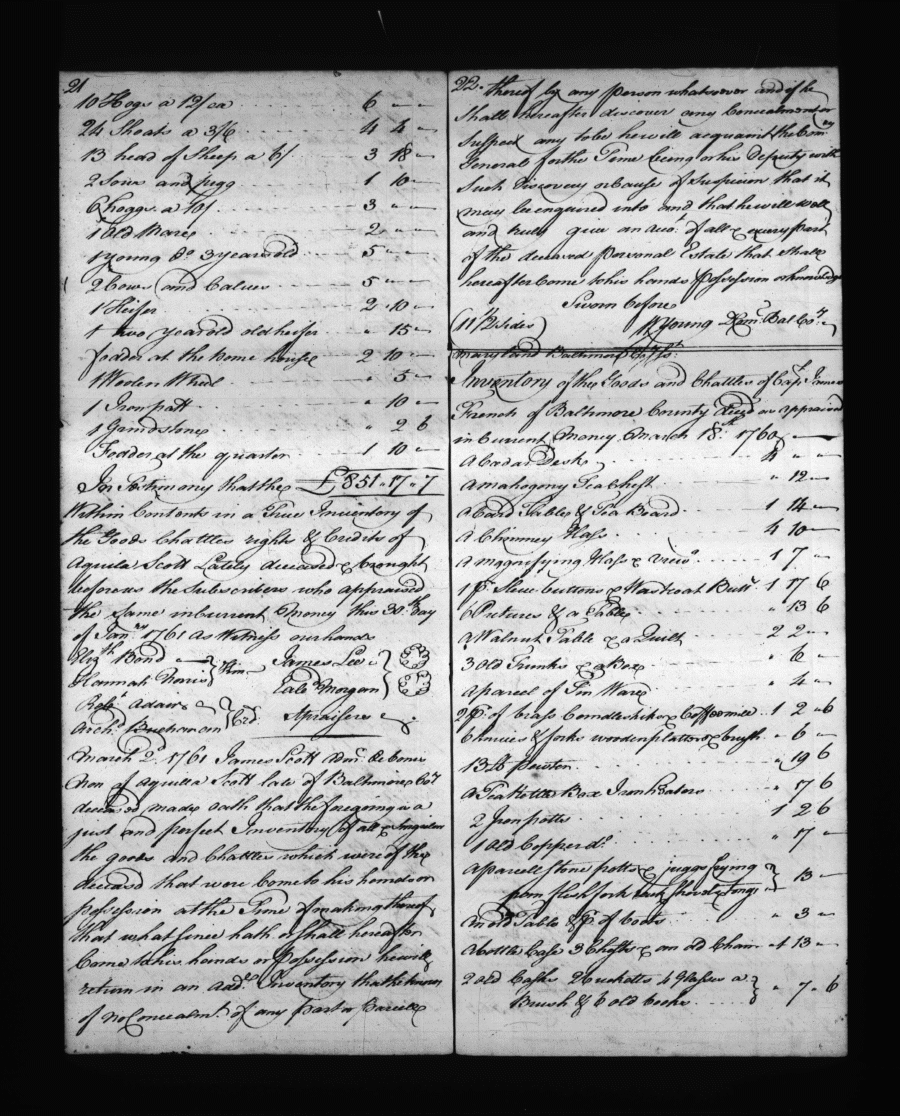 21
10 Hogs a 12/ ea 6 " "
24 Shoats a 3/6 4 4 "
13 head of Sheep a 6/ 3 18 "
2 Sows and piggs 1 10 "
6 hoggs a 10/ 3 " "
1 Old Mare 2 " "
1 young Do 3 years old 5 " "
2 Cows and Calves 5 " "
1 Heifer 2 10 "
1 two year old old heifer " 15 "
foader at the home house 2 10 "
1 Woolen Wheel " 5 "
1 Iron pott " 10 "
1 Grindstone " 2 6
Fodder at the quarter 1 10 "
In Testimony that the £851 " 17 " 7
Within Contents in a True Inventory of
the Goods Chattles rights & Credits of
Aquila Scott Lately deceased & brought
before us the Subscribers who appraised
the same in Current Money this 30th day
of Janry 1761 As Witness our hands
Elizth Bond James Lee
Hannah Norris Kin
Morgan
Robt Adair
Archd Buchanan Crd Apraisers
March 2d 1761 James Scott Admr De bonis
Non of Aquilla Scott late of Baltimore Coty
deceased made oath that the foregoing is a
just and perfect Inventory of all & Singular
the goods and Chattles which were of the
deceasd that were Come to his hands or
possession at the Time of making thereof
that what since hath or shall hereafter
Come to his hands or possession he will
return in an addl Inventory that he knows
of no Concealmt of any part or parcell
22 thereof by any person whatsoever and if he
shall hereafter discover any Concealment or
suspect any to be he will acquaint the Comy
General for the Time being or his Deputy with
such Discovery or Cause of Suspicion that it
may be enquired into and that he will well
and truly give an Acct of all & every part
of the deceased personal Estate that shall
hereafter come to his hands possession or knowledge
Sworn before
(11 1/2 sides) W Young Dcomy Bal Coty
Maryland Baltimore
Inventory of the Goods and Chattles of Capt James
French of Baltimore County Decd as appraised
in Current Money March 18th 1760
A Cedar Desk 4 " "
A mahogony Tea Chest " 12 "
A Card Table & Tea Board 1 14 "
A Chimney Glass 4 10 "
A magnifying Glass & views 1 7 "
1 pr Sleve buttons & Wastcoat Buttn 1 17 6
6 Pictures & a Table " 13 6
A Walnut Table & a Quilt 2 2 "
3 old Trunks & a Box " 6 "
A parcel of Tin Ware " 4 "
2 pr of brass Candlesticks & Coffeemill 1 2 " 6
6 knives & forks wooden platters & brush " 6 "
13 lb pewter " 19 6
A Tea Kettle Box Iron & Heaters " 17 6
2 Iron potts 1 2 6
1 Old Copper do " 17 "
A parcell stone potts & juggs frying
pan flesh fork shovel & tongs " 13 "
An old Table & pr of boots " 3 "
A bottle Case 3 Chests & an old Chair " 13 "
2 old Casks Musketts 4 Glasses a
Brush & 6 old books " 7 " 6